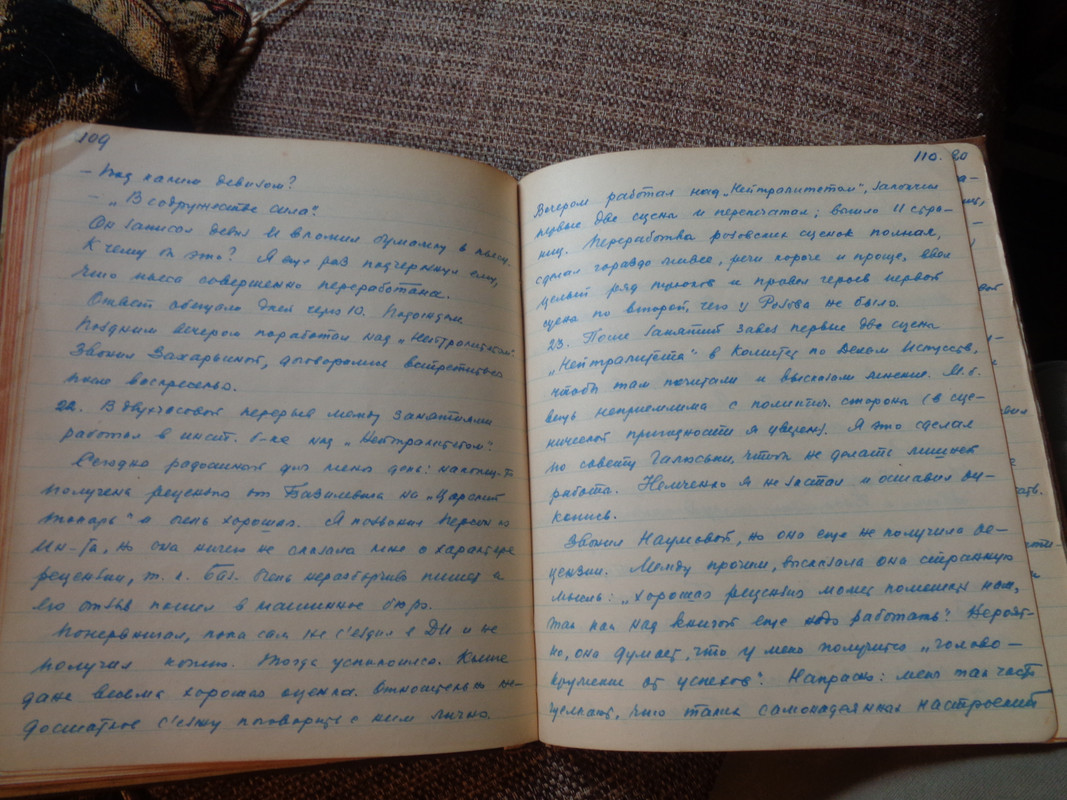 109
— Под каким девизом?
— „В содружестве сила".
Он записал девиз и вложил бумажку в пьесу.
К чему бы это? Я еще раз подчеркнул ему,
что пьеса совершенно переработана.
Ответ обещали дней через 10. Подождем
Поздним вечером поработал над „Нейтралитетом".
Звонил Захарьиной, договорились встретиться
после воскресенья.
22. В двухчасовой перерыв между занятиями
работал в инст. б-ке над „Нейтралитетом".
Сегодня радостный для меня день: наконец-то
получена рецензия от Базилевича на „Царский
токарь" и очень хорошая. Я позвонил Персон из
Ин-та, но она ничего не сказала мне о характере
рецензии, т. к. Баз. очень неразборчиво пишет и
его отзыв пошел в машинное бюро.
Понервничал, пока сам не съездил в ДИ и не
получил копию. Тогда успокоился. Книге
дана весьма хорошая оценка. Относительно не-
достатков съезжу поговорить с ним лично.
110.
Вечером работал над „Нейтралитетом", закончил
первые две сцены и перепечатал; вышло 11 стра-
ниц. Переработка розовских сценок полная,
сделал гораздо живее, речи короче и проще, ввел
целый ряд трюков и провел героев первой
сцены по второй, чего у Розова не было.
23. После занятий завез первые две сцены
„Нейтралитета" в Комитет по Делам Искусств,
чтобы там почитали и высказали мнение. М. б.
вещь неприемлима с политич. стороны (в сце-
нической пригодности я уверен). Я это сделал
по совету Галюськи, чтобы не делать лишней
работы. Немченко я не застал и оставил ру-
копись.
Звонил Наумовой, но она еще не получила ре-
цензии. Между прочим, высказала она странную
мысль: „хорошая рецензия может помешать нам,
так как над книгой еще надо работать". Вероят-
но, она думает, что у меня получится „голово-
кружение от успехов". Напрасно: меня так часто
щелкают, что таких самонадеянных настроений